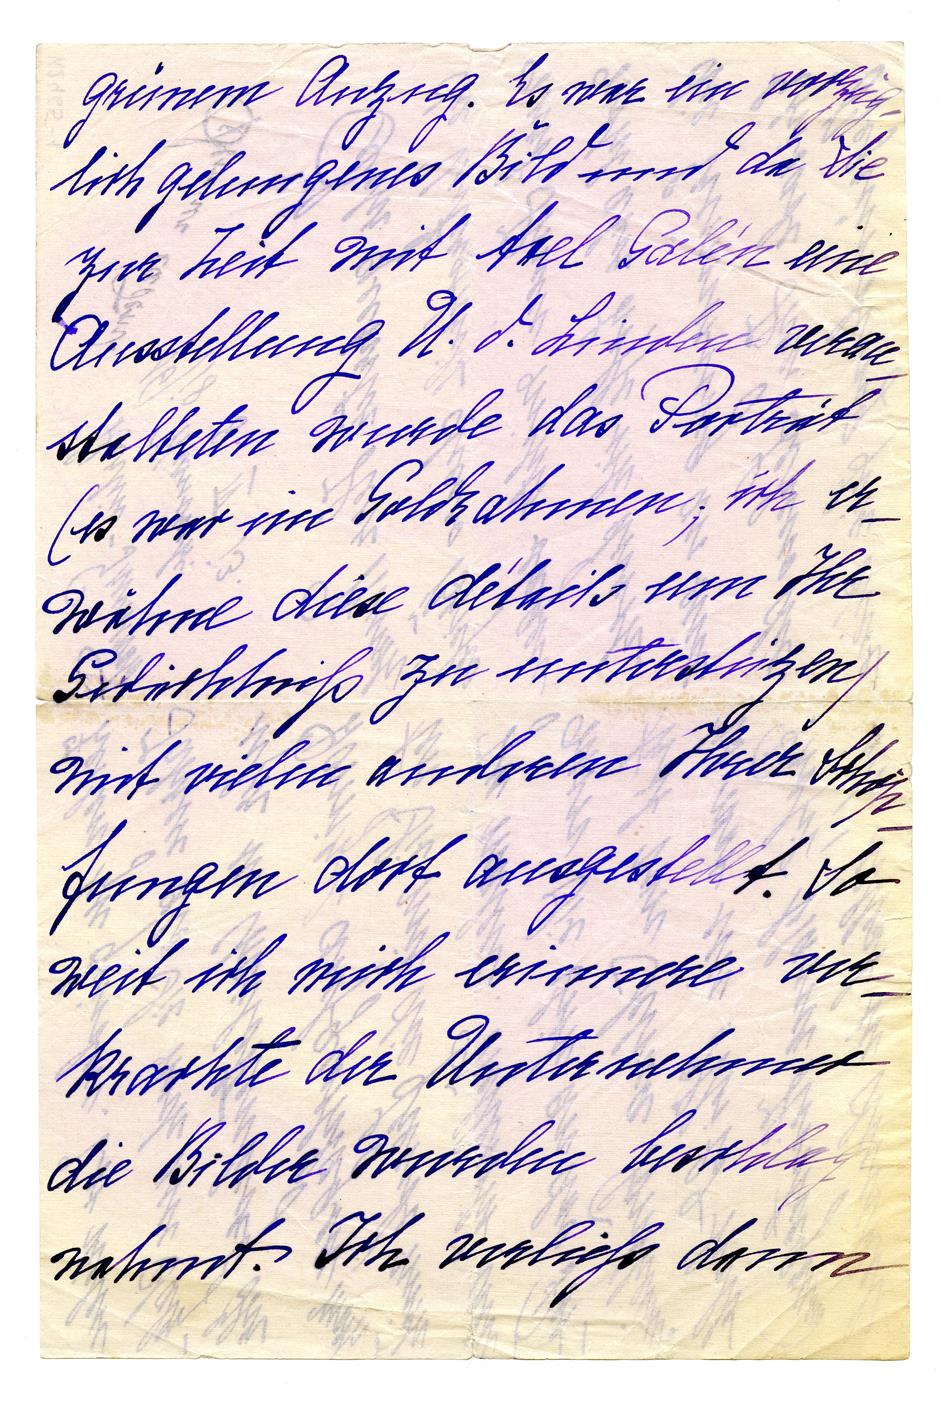 grünem Anzug. Es war ein vorzüg-
lich gelungenes Bild und da Sie
zur Zeit mit Axel Galén eine
Ausstellung U. d. Linden veran-
stalteten wurde das Porträt
(es war im Goldrahmen, ich er-
wähne diese détails um Ihr
Gedächtniß zu unterstützen)
mit vielen anderen Ihrer Schöp-
fungen dort ausgestellt. So
weit ich mich erinnere ver-
krachte der Unternehmer
die Bilder wurden beschlag
nahmt. Ich verließ dann